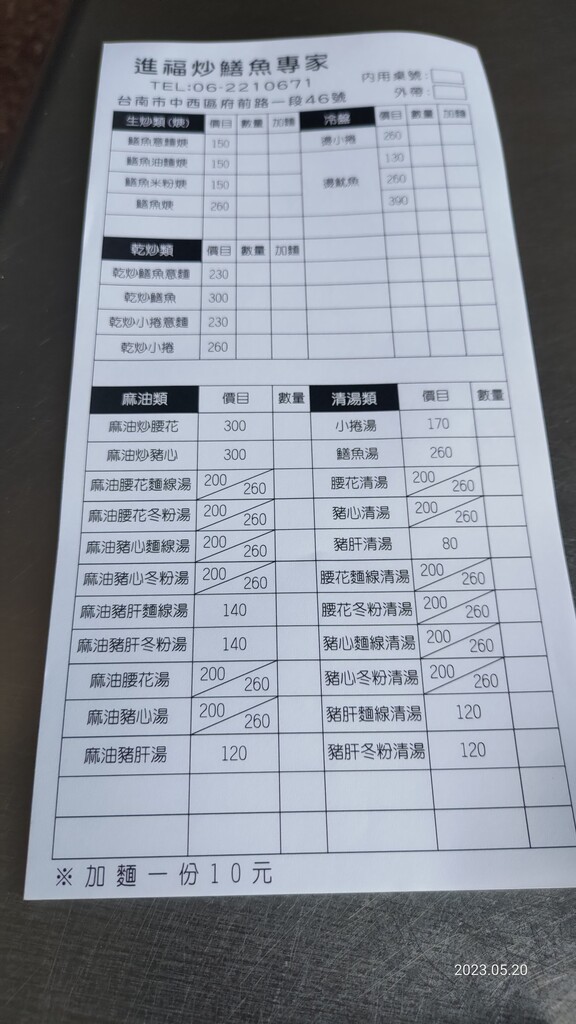 進福炒鱔魚專家
TEL:06-2210671
台南市中西區府前路一段46號
內用桌號:
外帶:
生炒類(焿) 價目 數量 加麵 冷盤 價目 數量 加麵
鱔魚意麵焿 150 燙小捲 260
鱔魚油麵焿 150 130
鱔魚米粉焿 150 燙魷魚 260
鱔魚焿 260 390
乾炒類 價目 數量 加麵
乾炒鱔魚意麵 230
乾炒鱔魚 300
乾炒小捲意麵 230
乾炒小捲 260
麻油類 價目 數量 清湯類 價目 數量
麻油炒腰花 300 小捲湯 170
麻油炒豬心 300 鱔魚湯 260
麻油腰花麵線湯 200/260 腰花清湯 200/260
麻油腰花冬粉湯 200/260 豬心清湯 200/260
麻油豬心麵線湯 200/260 豬肝清湯 80
麻油豬心冬粉湯 200/260 腰花麵線清湯 200/260
麻油豬肝麵線湯 140 腰花冬粉清湯 200/260
麻油豬肝冬粉湯 140 豬心麵線清湯 200/260
麻油腰花湯 200/260 豬心冬粉清湯 200/260
麻油豬心湯 200/260 豬肝麵線清湯 120
麻油豬肝湯 120 豬肝冬粉清湯 120
※加麵一份10元
2023.05.20